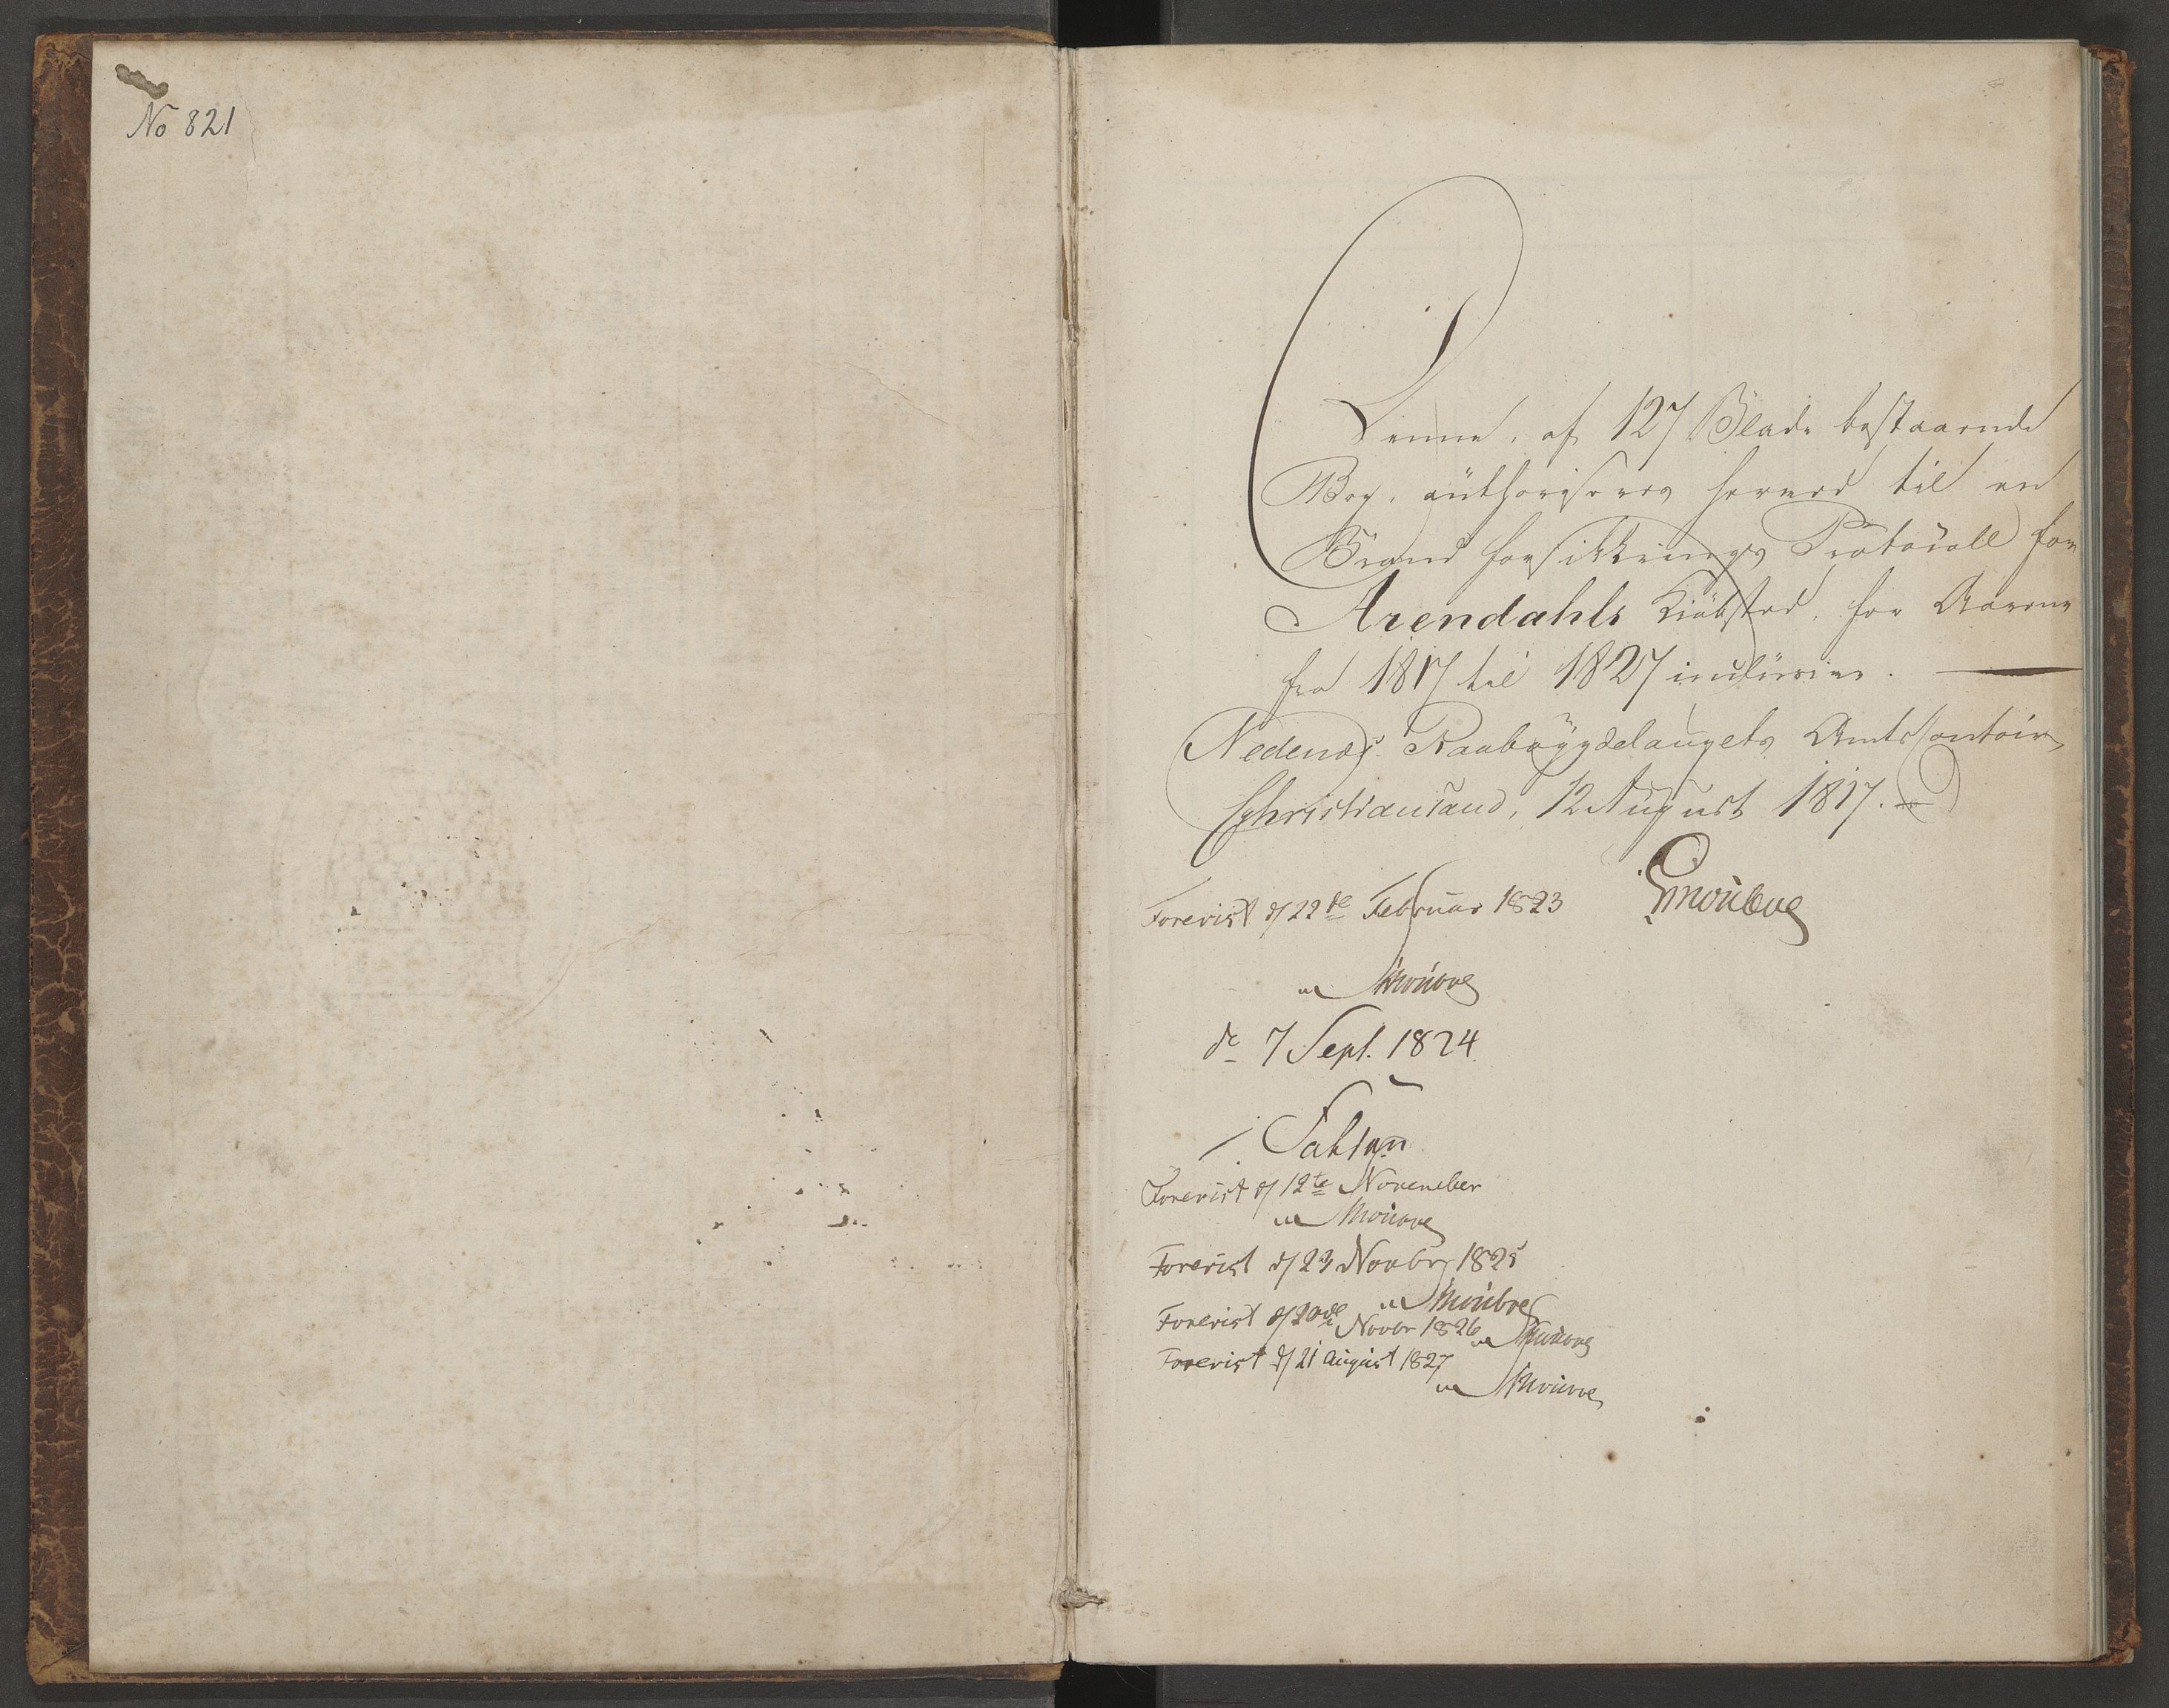 No 821
Denne, af 127 Blade bestaaende
Bog, aúthoriseres herved til en
Brand forsikkrings Protocoll for
Arendahls Kiöbsted, for Aarene
fra 1817 til 1827 inclúsive.
Nedenæs Raabøygdelaugets Amtscontoir,
Christiansand, 12 August 1817.
Forevist d/ 22de Februar 1823
de 7 Sept. 1824
Forevist d/ 12te November
Forevist d/ 23 Novbr 1825
Forevist d/ 20de Novbr 1826
Forevist d/ 21 August 1827